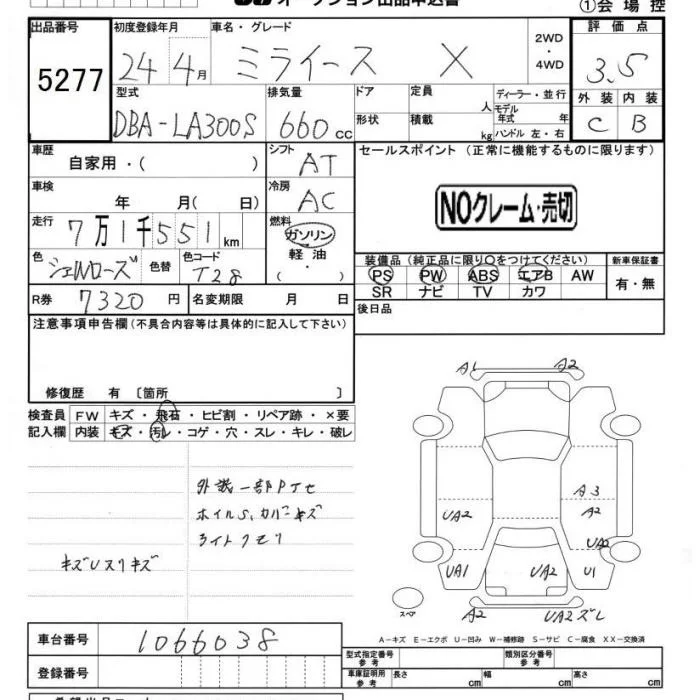 オークション出品申込書
①会場控
出品番号 初度登録年月 車名・グレード 2WD・4WD 評価点
5277 24年4月 ミライース X 3.5
型式 排気量 ドア 定員 人 ディーラー・並行 外装 内装
DBA-LA300S 660cc 形状 積載 kg モデル年式 年 ハンドル 左・右 C B
車歴 自家用・( ) シフト AT セールスポイント (正常に機能するものに限ります)
車検 年 月( 日) 冷房 AC
NOクレーム・売切
走行 7万1千551km 燃料 ガソリン 軽油 ( ・ )
色 シェルローズ 色替 色コード T28
装備品 (純正品に限り○をつけてください) 新車保証書
PS PW ABS エアB AW 有・無
SR ナビ TV カワ
R券 7320円 名変期限 月 日 後日品
注意事項申告欄 (不具合内容等は具体的に記入して下さい)
修復歴 有 〔箇所 〕
検査員記入欄 FW キズ・飛石・ヒビ割・リペア跡・×要
内装 キズ・汚レ・コゲ・穴・スレ・キレ・破レ
外装一部Pアセ
ホイルS,カバーキズ
ライトクモリ
キズUスリキズ
A1 A2
A3
A2
UA2 UA2
UA1 UA2 U1
スペア A2 UA2ズレ
A-キズ E-エクボ U-凹み W-補修跡 S-サビ C-腐食 XX-交換済
車台番号 1066038
型式指定番号 参考 類別区分番号 参考
登録番号 車庫証明用 参考 長さ cm 幅 cm 高さ cm